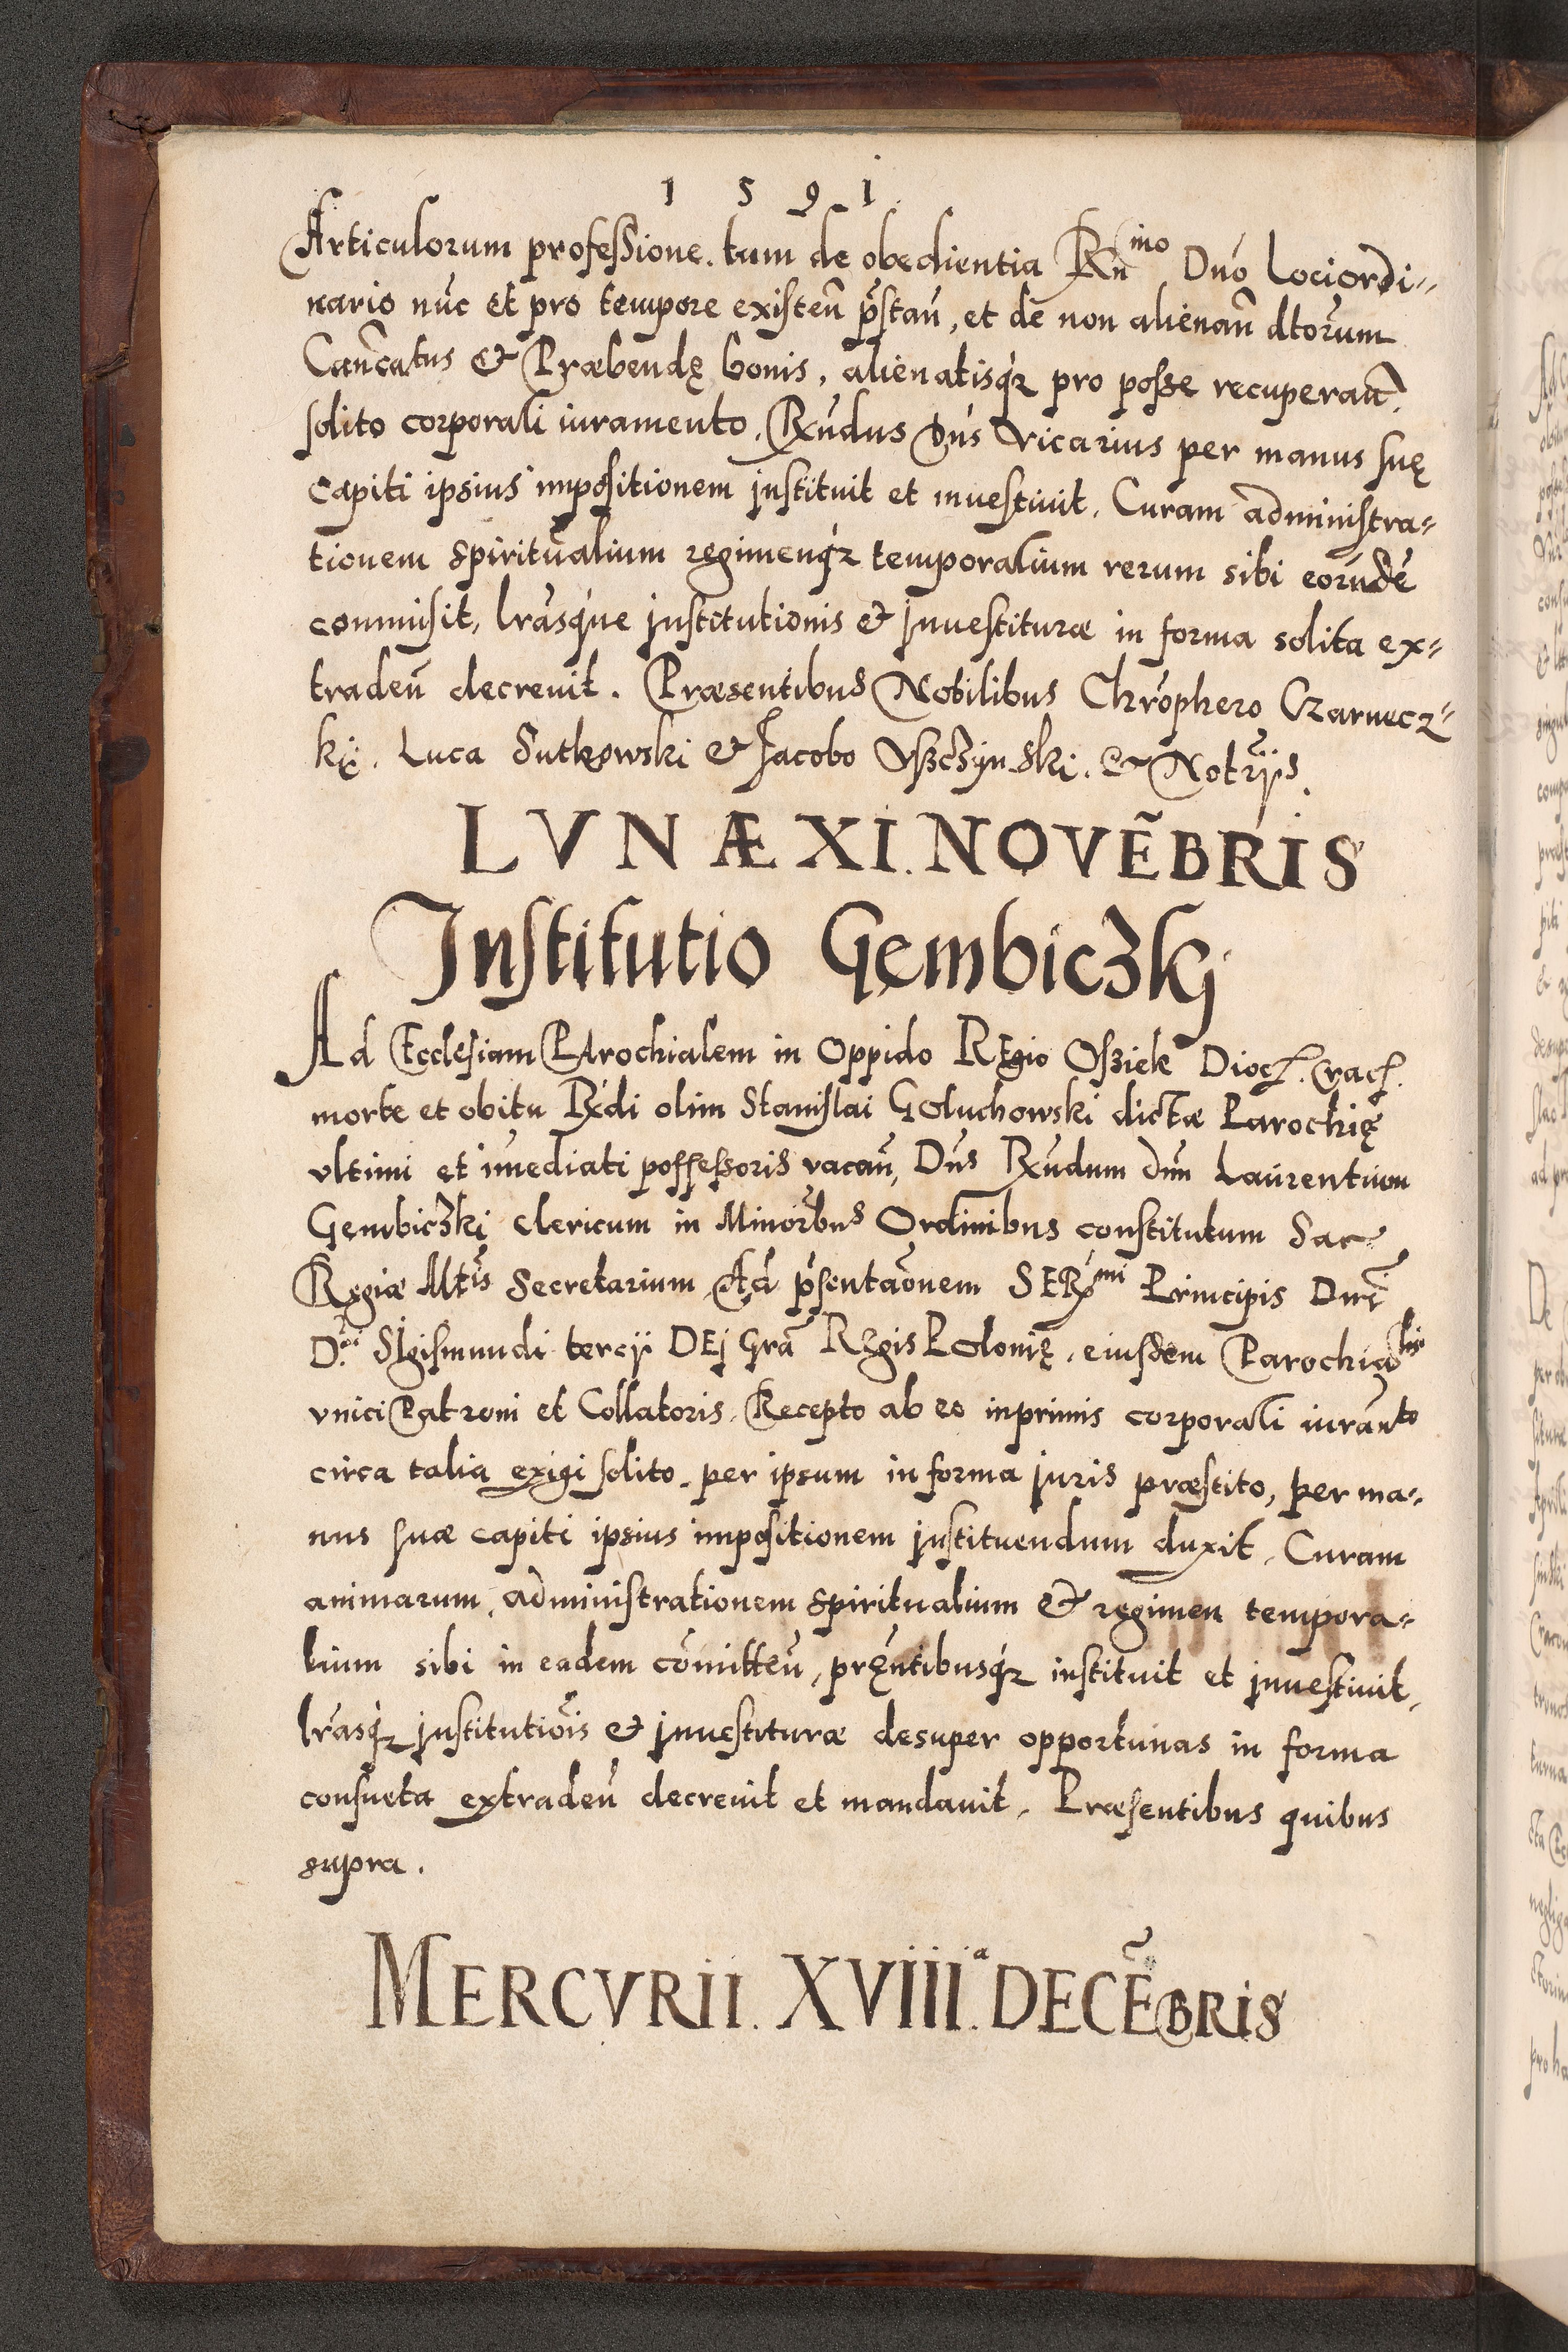 1 5 9 1.
Articulorum professione. tum de obedientia Rn̄mo Dn̄o Lociordi-
nario nūc et pro tempore existen̄ p̄stan̄, et de non alienan̄ dtorum
Can̄catus & Præbendę bonis, alienatisq́ꝫ pro posse recuperan̄.
solito corporali iuramento. Rn̄dus Dn̄s Vicarius per manus suę
capiti ipsius impositionem jnstituit et inuestiuit. Curam administra-
tionem spiritualium regimenq́ꝫ temporalium rerum sibi eorundē
commisit, lr̄asque jnstitutionis & jnuestituræ in forma solita ex-
traden̄ decreuit. Præsentibus Nobilibus Chr̄ophero Czarnecz-
kį. Luca Sutkowski & Jacobo Vszczÿnski. & Notr̄ijs.
LVNÆ XI. NOVĒBRIS
Institutio Gembiczkj
Ad Ecclesiam Parochialem in Oppido REgio Osziek Dioc. Crac.
morte et obitu Rd̄i olim Stanislai Goluchowski dictæ Parochię
vltimi et im̄ediati possessoris vacan̄, Dn̄s Rn̄dum dn̄m Laurentium
Gembiczki clericum in Minorbus Ordinibus constitutum Sac
Regiæ Mtis Secretarium Ad p̄sentaōnem SERmi Principis Dn̄i
D.ni SIgismundi tercij DEj Grā REgis Polonię, eiusdem Parochialis
vnici Patroni et Collatoris. Recepto ab eo inprimis corporali iuran̄to
circa talia exigi solito. per ipsum in forma juris præstito, per ma-
nus suæ capiti ipsius impositionem jnstituendum duxit. Curam
animarum, administrationem spiritualium & regimen tempora-
lium sibi in eadem cōmitten̄, pręn̄tibusq́ꝫ instituit et jnuestiuit,
lr̄asq́ꝫ jnstitutiōis & jnuestituræ desuper opportunas in forma
consueta extraden̄ decreuit et mandauit. Præsentibus quibus
supra.
MERCVRII. XVIIIa. DECĒBRIS